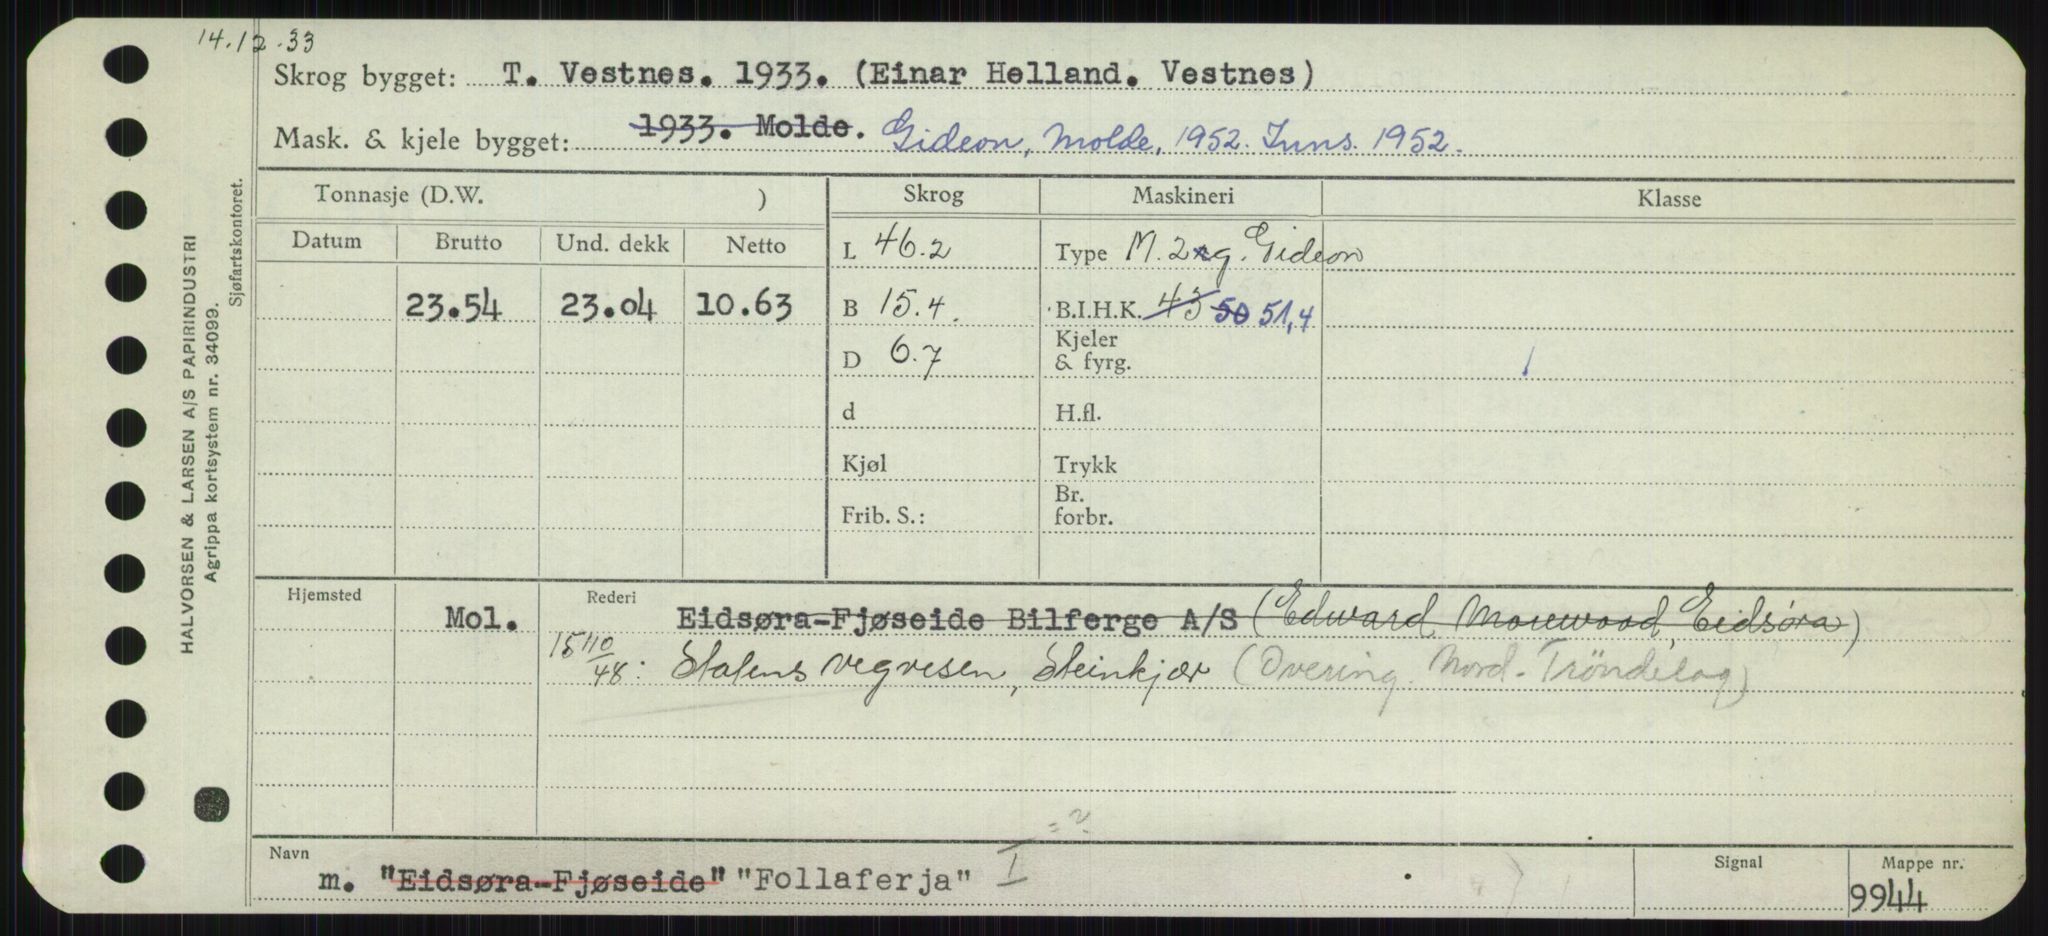 14.12.33
Skrog bygget: T. Vestnes. 1933. (Einar Helland. Vestnes)
Mask. & kjele bygget: 1933. Molde. Gideon, Molde, 1952. Inns. 1952.
Tonnasje (D.W. ) Skrog Maskineri Klasse
Datum Brutto Und. dekk Netto L 46.2 Type M. 2 g. Gideon
23.54 23.04 10.63 B 15.4. B.I.H.K. 43 50 51,4
D 6.7 Kjeler & fyrg.
d H.fl.
Kjøl Trykk
Frib. S.: Br. forbr.
Hjemsted Mol. Rederi Eidsøra-Fjøseide Bilferge A/S (Edward Morewood, Eidsøra)
15/10/48: Statens vegvesen, Steinkjer (Overing. Nord-Tröndelag)
= ?
Navn m. "Eidsøra-Fjøseide" "Follaferja" I Signal Mappe nr. 9944
HALVORSEN & LARSEN A/S PAPIRINDUSTRI
Agrippa kortsystem nr. 34099.
Sjøfartskontoret.